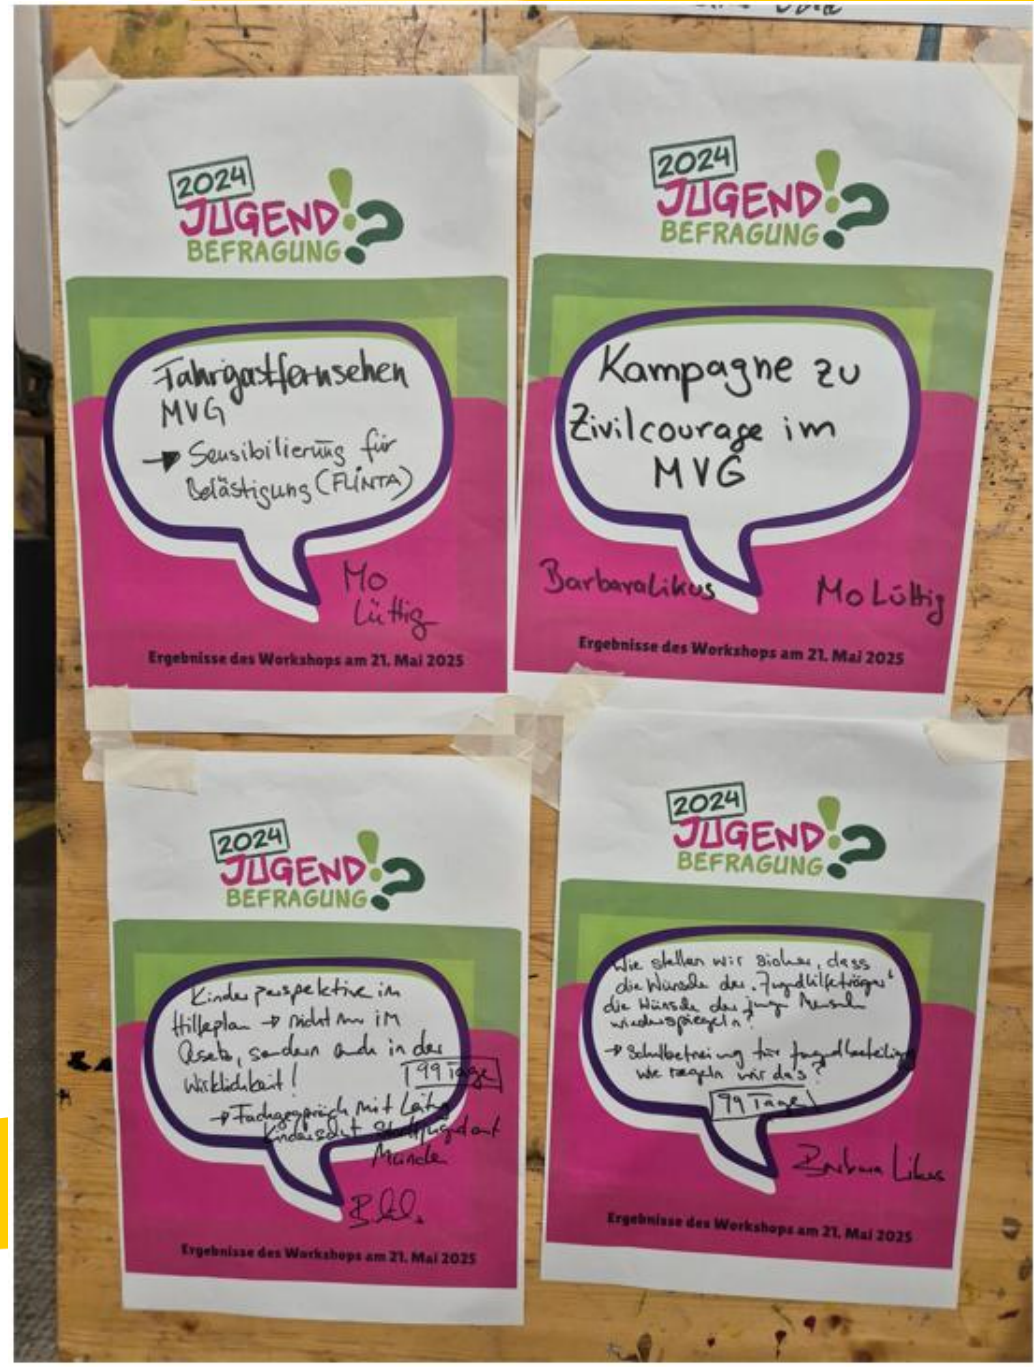 2024
JUGEND!?
BEFRAGUNG
Fahrgastfernsehen
MVG
→ Sensibilierung für
Belästigung (FLINTA)
Mo
Lüttig
Ergebnisse des Workshops am 21. Mai 2025
2024
JUGEND!?
BEFRAGUNG
Kampagne zu
Zivilcourage im
MVG
Barbara Likus
Mo Lüttig
Ergebnisse des Workshops am 21. Mai 2025
2024
JUGEND!?
BEFRAGUNG
Kinderperspektive im
Hilfeplan → nicht nur im
Gesetz, sondern auch in der
Wirklichkeit!
99 Tage
→ Fachgespräch mit
Stadtjugendamt
Ergebnisse des Workshops am 21. Mai 2025
2024
JUGEND!?
BEFRAGUNG
Wie stellen wir sicher, dass
die Wünsche der "Jugendhilfeträger"
die Wünsche der
wiederspiegeln?
→ Schulbefreiung für
wie regeln wir das?
99 Tage
Barbara Likus
Ergebnisse des Workshops am 21. Mai 2025